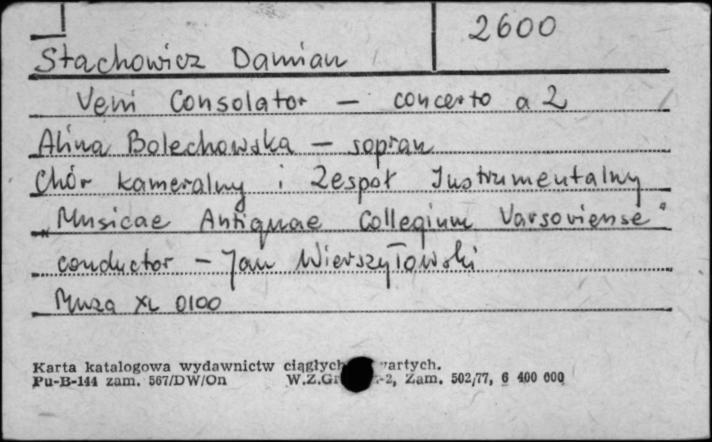 2600
Stachowicz Damian
Veni Consolator — concerto a 2
Alina Bolechowska — sopran
Chór kameralny i Zespół Instrumentalny
"Musicae Antiquae Collegium Varsoviense"
conductor — Jan Wierszyłowski
Muza XL 0100
Karta katalogowa wydawnictw ciągłych
Pu-B-144 zam. 567/DW/On W.Z.Gr -2, Zam. 502/77, 6 400 000